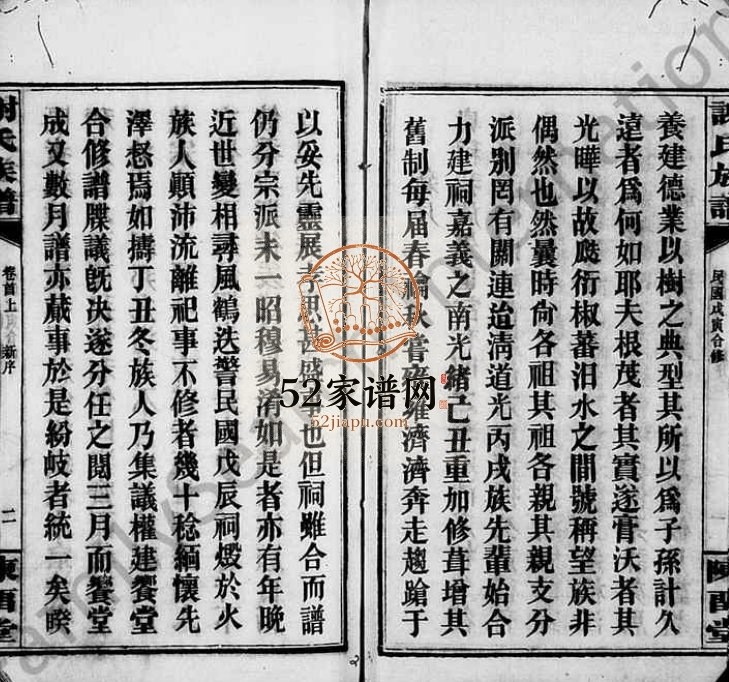 養建德業以樹之典型其所以為子孫計久
遠者為何如耶夫根茂者其實遂膏沃者其
光曄以故瓞衍椒蕃汨水之間號稱望族非
偶然也然曩時尙各祖其祖各親其親支分
派別罔有關連迨淸道光丙戌族先輩始合
力建祠嘉義之南光緒己丑重加修葺增其
舊制每屆春禴秋嘗雍雍濟濟奔走趨蹌于
以妥先靈展孝思甚盛也但祠雖合而譜
仍分宗派未一昭穆易淆如是者亦有年晚
近世變相尋風鶴迭警民國戊辰祠燬於火
族人顚沛流離祀事不修者幾十稔緬懷先
澤惄焉如擣丁丑冬族人乃集議權建饗堂
合修譜牒議旣決遂分任之閱三月而饗堂
成又數月譜亦蕆事於是紛歧者統一矣暌
謝氏族譜
民國戊寅合修
一
陳酉堂
謝氏族譜
卷首上
新序
二
陳酉堂
52家谱网
52jiapu.com